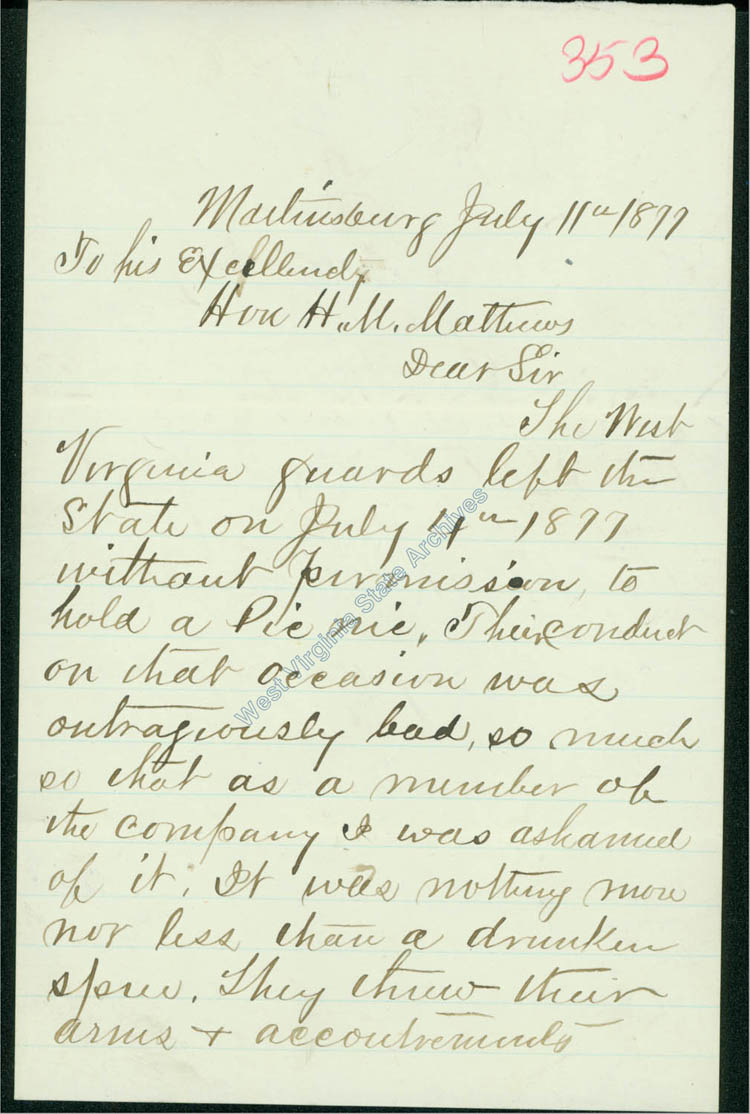 353
Martinsburg July 11th 1877
To his Excellency
Hon H. M. Mathews
Dear Sir
The West
Virginia guards left the
State on July 4th 1877
without permission, to
hold a Pic nic. Their conduct
on that occasion was
outragiously bad, so much
so that as a member of
the company I was ashamed
of it. It was nothing more
nor less than a drunken
spree. They threw their
arms + accoutrements
West Virginia State Archives